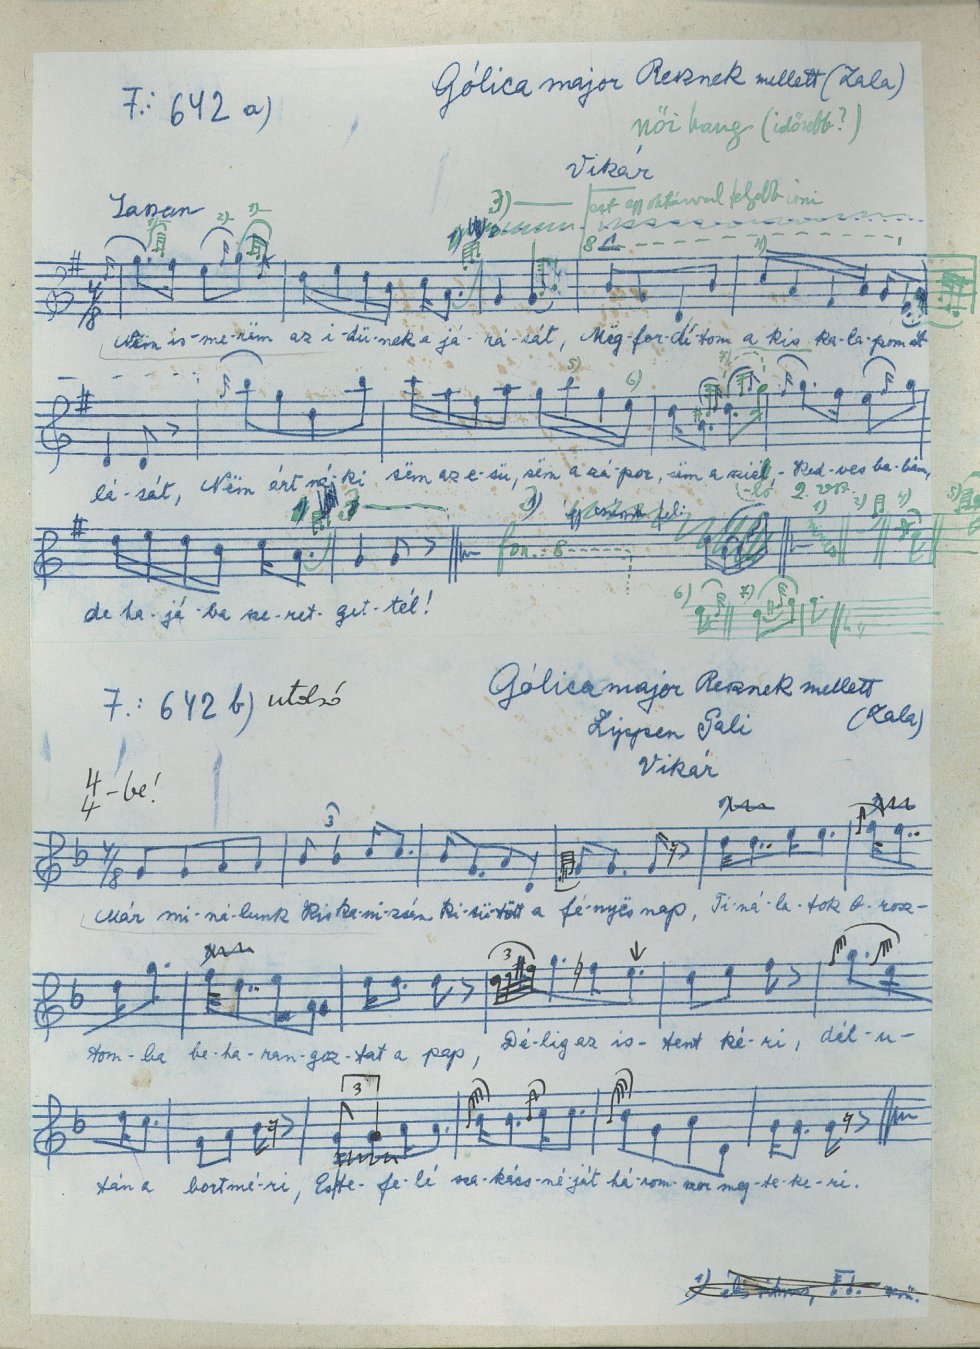 7.: 642 a)
Gólica major Resznek mellett (Zala)
női hang (idősebb?)
Vikár
Lassan
3)
8
Nëm is-me-rëm az i-dü-nek a já-rá-sát, Mëg-for-dí-tom a kis ka-la-pom át
lá-sát, Nëm árt né-ki sëm az e-ső, sëm a zá-por, sëm a szél, - Ked-ves ba-bám,
2. vsz.
1) 2) 4) 5)
3)
fon. 8
de ha-já-ba sze-ret-get-tél!
6) 7)
7.: 642 b) utolsó
Gólica major Resznek mellett
(Zala)
Lippen Pali
Vikár
4/4-be!
3
Már mi-ná-lunk Kiskani-zsán ki-sü-tött a fé-nyës nap, Ti-ná-la-tok o-rosz-
3
tom-ba be-ha-ran-goz-tat a pap, Dé-lig az is-tent ké-ri, dél-u-
3
tán a bort mé-ri, Este-fe-lé sza-kács-né-ját há-rom-szor meg-te-ke-ri.